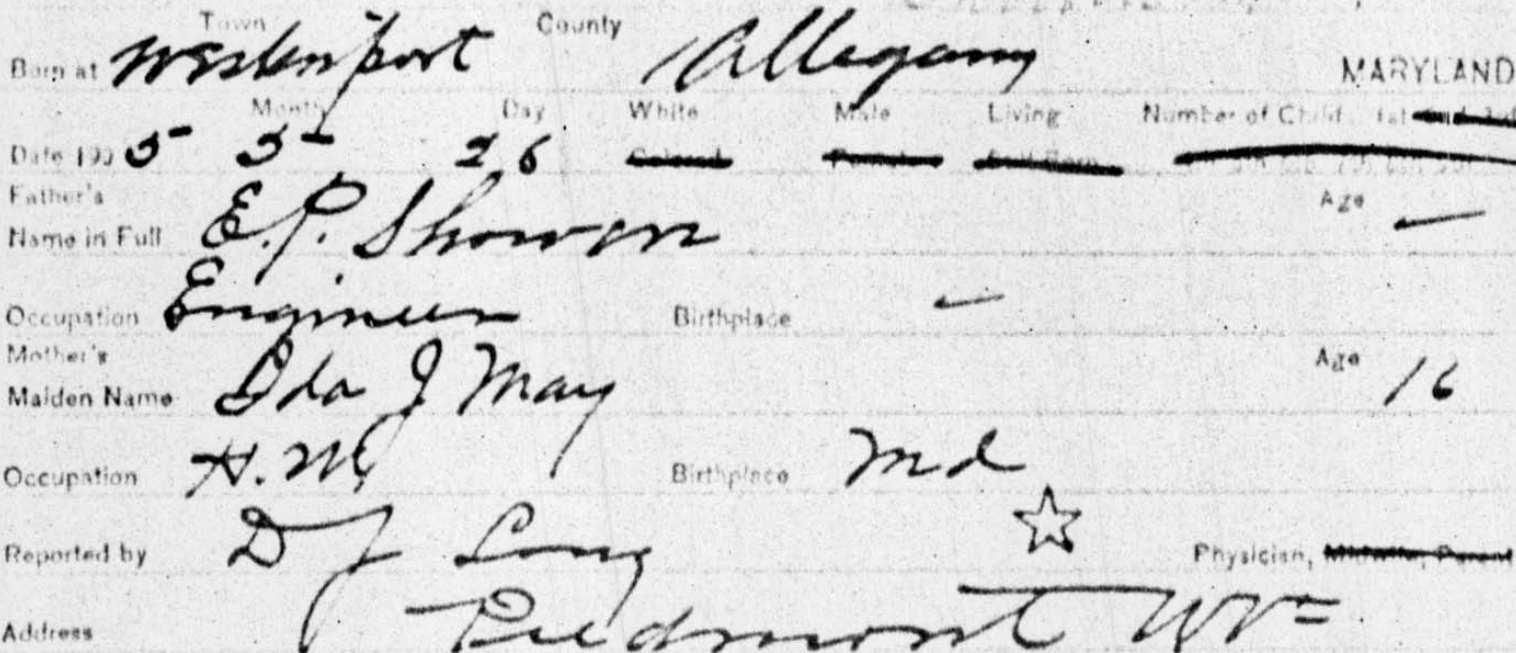 Town County
Born at Westernport Allegany MARYLAND
Month Day White Male Living Number of Child 1st
Date 190 5 5 26 Colored Female Still Born
Father's Age
Name in Full E.P. Showen
Occupation Engineer Birthplace
Mother's Age 16
Maiden Name Ida J May
Occupation H.W. Birthplace Md
Reported by D J Long Physician, Midwife, Parent
Address Piedmont WVa